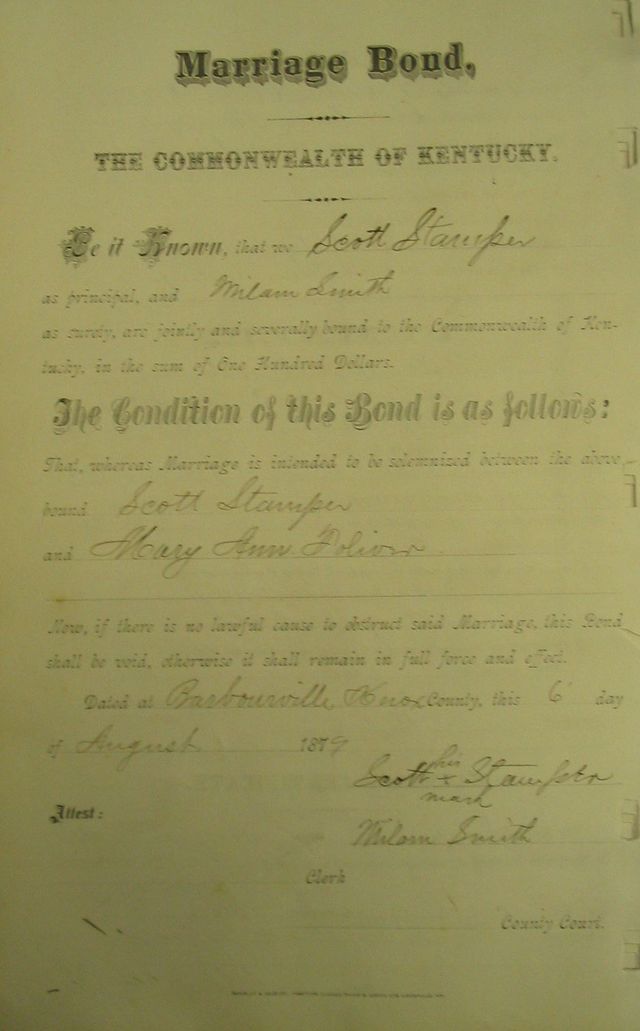 Marriage Bond,
THE COMMONWEALTH OF KENTUCKY.
Be it Known, that we Scott Stamper
as principal, and Milam Smith
as surety, are jointly and severally bound to the Commonwealth of Ken-
tucky, in the sum of One Hundred Dollars.
The Condition of this Bond is as follows:
That, whereas Marriage is intended to be solemnized between the above
bound Scott Stamper
and Mary Ann Toliver
Now, if there is no lawful cause to obstruct said Marriage, this Bond
shall be void, otherwise it shall remain in full force and effect.
Dated at Barbourville, Knox County, this 6 day
of August 1879
his
Scott x Stamper
mark
Attest:
Milam Smith
Clerk
County Court.